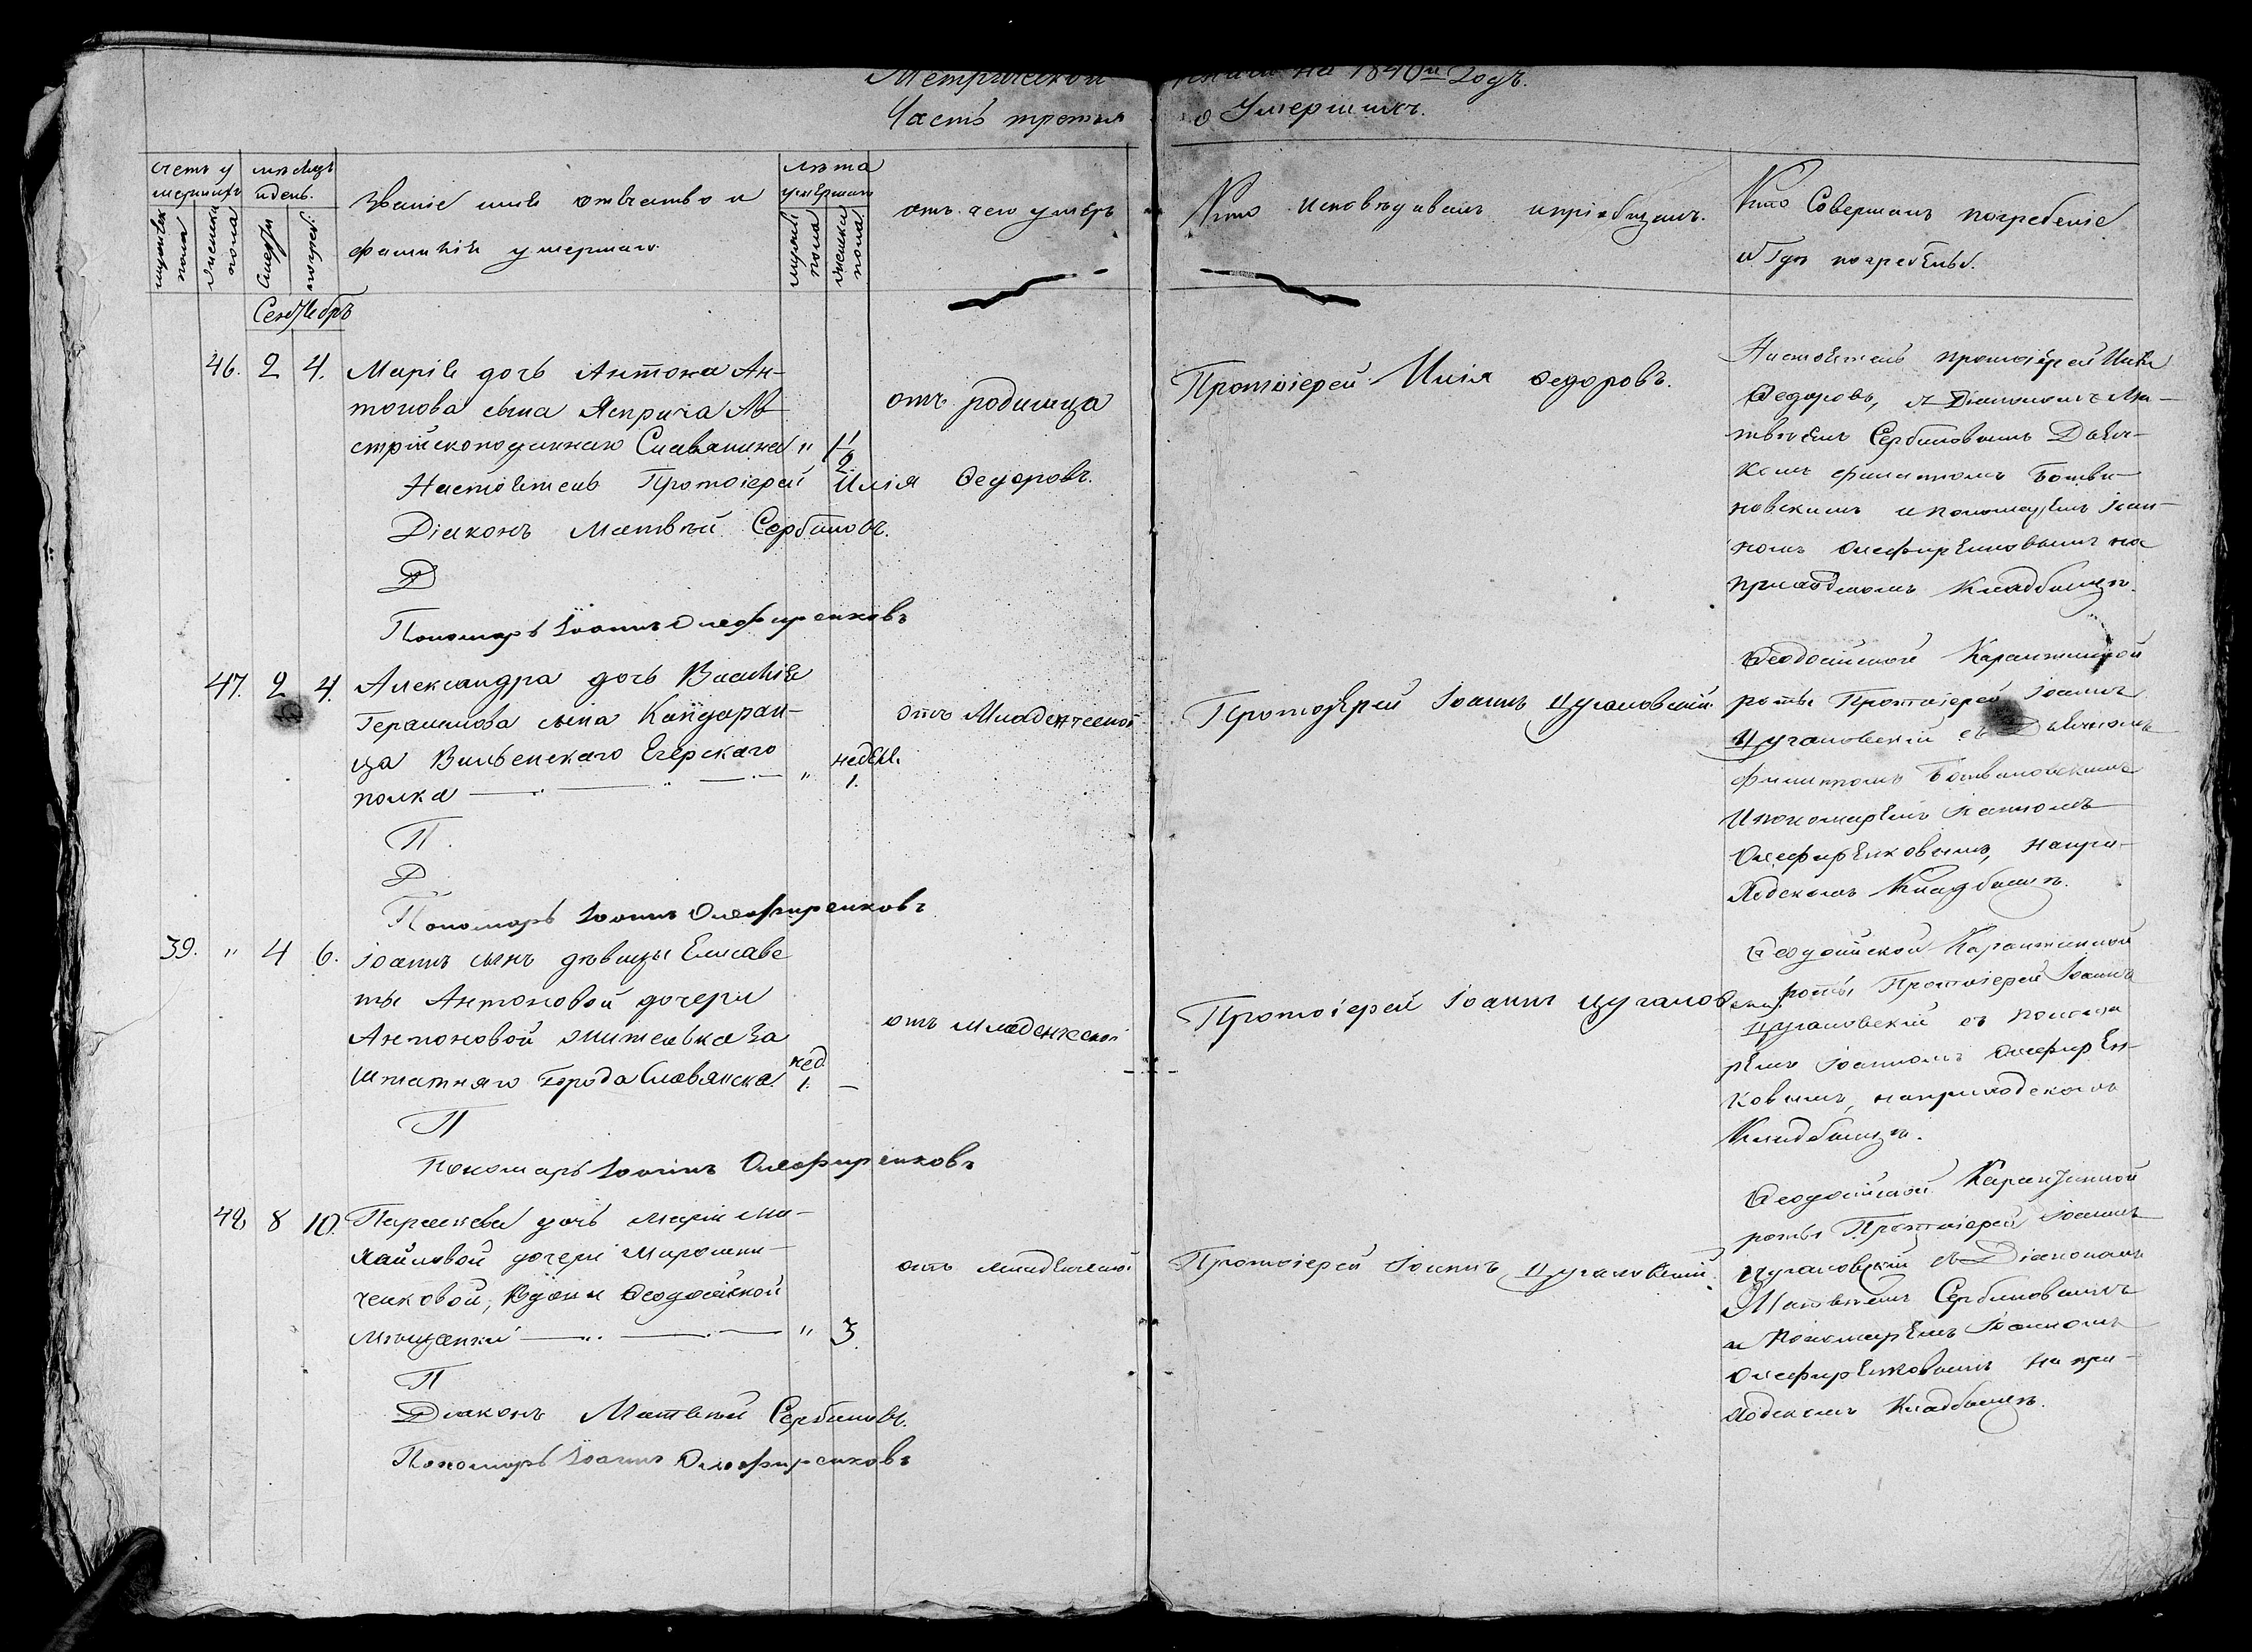 Метрической книги на 1840й Годъ.
Часть третья о Умершихъ.
счетъ у
мершихъ
мужеска
пола
женска
пола
мѣсяцъ
и день.
смерти
погреб:
Званіе имя отчество и
фамилія умершаго.
лѣта
умершаго
мужеск
пола
женска
пола
отъ чего умеръ
Кто исповѣдывалъ и пріобщалъ.
Кто Совершалъ погребеніе
и Гдѣ погребены.
Сентябрь
46. 2 4. Марія дочь Антона Ан-
тонова сына Ав-
стрійскоподаннаго Славянина " 1 1/2
отъ родимца
Протоіерей Илія Федоровъ.
Настоятель протоіерей Илія
Федоровъ, съ Діакономъ Ма-
твѣемъ Сербиновымъ Дьяч-
комъ Филиппомъ Ботви-
новскимъ и пономаремъ Іоан-
номъ Олефиренковымъ на
приходскомъ Кладбищѣ.
Настоятель Протоіерей Илія Федоровъ.
Діаконъ Матвѣй Сербиновъ.
Д
Пономарь Іоаннъ Олефиренковъ
47. 2 4. Александра дочь Василія
Герасимова сына
ца Виленскаго Егерскаго
полка " недѣл. 1.
отъ Младенческой
Протоіерей Іоаннъ Цугановскій.
Феодосійской Карантинной
роты Протоіерей Іоаннъ
Цугановскій съ Дьячкомъ
Филиппомъ Ботвиновскимъ
и пономаремъ Іоанномъ
Олефиренковымъ, на при-
ходскомъ Кладбищѣ.
П
Д
Пономарь Іоаннъ Олефиренковъ
39. " 4 6. Іоаннъ сынъ дѣвицы Елисаве
ты Антоновой дочери
Антоновой жителька За
штатнаго Города Славянска. нед. 1. —
отъ младенческой
Протоіерей Іоаннъ Цугановскій.
Феодосійской Карантинной
роты Протоіерей Іоаннъ
Цугановскій съ понома
ремъ Іоанномъ Олефирен-
ковымъ, на приходскомъ
Кладбищѣ.
П
Пономарь Іоаннъ Олефиренковъ
48 8 10. Параскева дочь Маріи Ми-
хайловой дочери Мирошни-
ченковой, Вдовы Феодосійской
мѣщанки " 3.
отъ младенческой
Протоіерей Іоаннъ Цугановскій.
Феодосійской Карантинной
роты Протоіерей Іоаннъ
Цугановскій съ Діакономъ
Матвѣемъ Сербиновымъ
и Пономаремъ Іоанномъ
Олефиренковымъ на при-
ходскомъ Кладбищѣ.
П
Діаконъ Матвѣй Сербиновъ.
Пономарь Іоаннъ Олефиренковъ